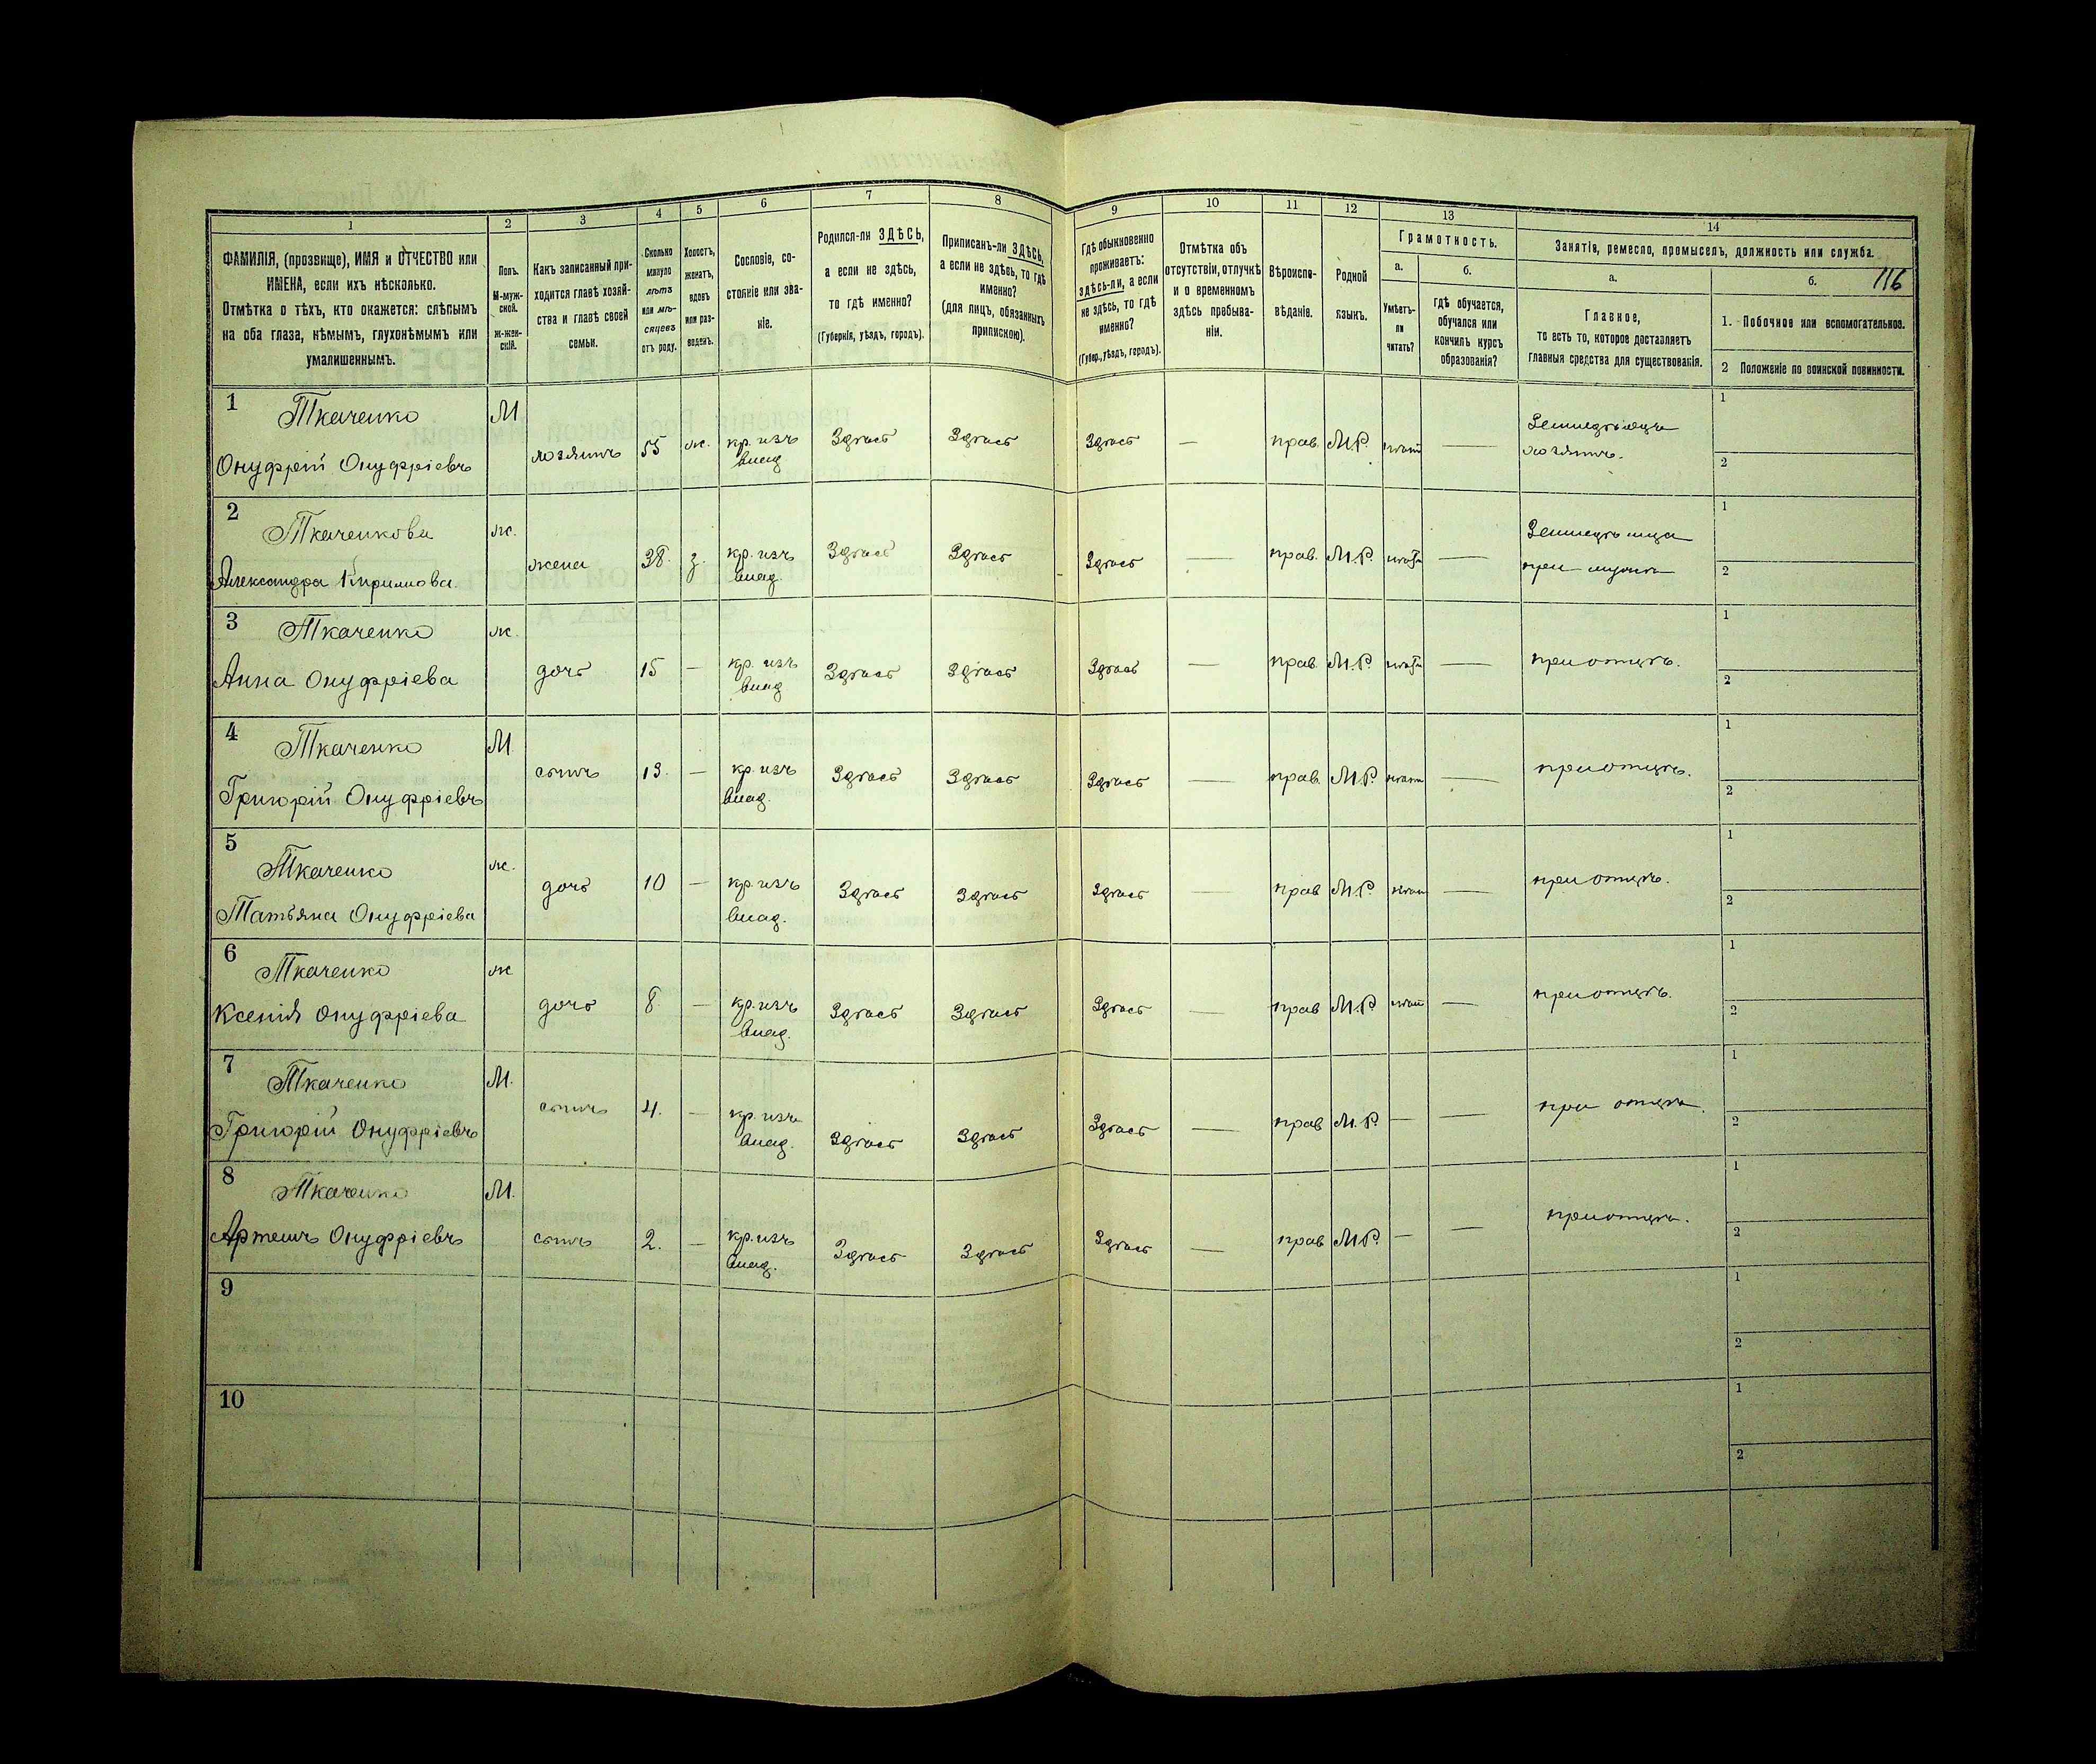 116
1 2 3 4 5 6 7 8 9 10 11 12 13 14
ФАМИЛІЯ, (прозвище), ИМЯ и ОТЧЕСТВО или
ИМЕНА, если ихъ нѣсколько.
Отмѣтка о тѣхъ, кто окажется: слѣпымъ
на оба глаза, нѣмымъ, глухонѣмымъ или
умалишеннымъ.
Полъ.
М-муж-
ской.
Ж-жен-
скій.
Какъ записанный при-
ходится главѣ хозяй-
ства и главѣ своей
семьи.
Сколько
минуло
лѣтъ
или мѣ-
сяцевъ
отъ роду.
Холостъ,
женатъ,
вдовъ
или раз-
веденъ.
Сословіе, со-
стояніе или зва-
ніе.
Родился-ли ЗДѢСЬ,
а если не здѣсь,
то гдѣ именно?
(Губернія, уѣздъ, городъ).
Приписанъ-ли ЗДѢСЬ,
а если не здѣсь, то гдѣ
именно?
(для лицъ, обязанныхъ
припискою).
Гдѣ обыкновенно
проживаетъ:
здѣсь-ли, а если
не здѣсь, то гдѣ
именно?
(Губер., уѣздъ, городъ).
Отмѣтка объ
отсутствіи, отлучкѣ
и о временномъ
здѣсь пребыва-
ніи.
Вѣроиспо-
вѣданіе.
Родной
языкъ.
Грамотность.
а.
Умѣетъ-
ли
читать?
б.
гдѣ обучается,
обучался или
кончилъ курсъ
образованія?
Занятіе, ремесло, промыселъ, должность или служба.
а.
Главное,
то есть то, которое доставляетъ
главныя средства для существованія.
б.
1. Побочное или вспомогательное.
2 Положеніе по воинской повинности.
1 Ткаченко М
Онуфрій Онуфріевъ хозяинъ 55 ж. кр. изъ Здѣсь Здѣсь Здѣсь — прав. М.Р. нѣтъ — Земледѣлецъ 1
влад хозяинъ. 2
2 Ткаченкова ж. Земледѣлица 1
Александра Кирилова. жена 38. з. кр. изъ Здѣсь Здѣсь Здѣсь — прав. М.Р. нѣтъ — при мужѣ 2
влад.
3 Ткаченко ж. 1
Анна Онуфріева дочь 15 — кр. изъ Здѣсь Здѣсь Здѣсь — прав. М.Р. нѣтъ — при отцѣ. 2
влад
4 Ткаченко М. 1
Григорій Онуфріевъ сынъ 13. — кр. изъ Здѣсь Здѣсь Здѣсь — прав. М.Р. нѣтъ — при отцѣ. 2
влад.
5 Ткаченко ж. 1
Татьяна Онуфріева дочь 10 — кр. изъ Здѣсь Здѣсь Здѣсь — прав М.Р. нѣтъ — при отцѣ. 2
влад.
6 Ткаченко ж 1
Ксенія Онуфріева дочь 8. — кр. изъ Здѣсь Здѣсь Здѣсь — прав М.Р. нѣтъ — при отцѣ. 2
влад.
7 Ткаченко М. 1
Григорій Онуфріевъ сынъ 4. — кр. изъ Здѣсь Здѣсь Здѣсь — прав М.Р. — — при отцѣ. 2
влад.
8 Ткаченко М. 1
Артемъ Онуфріевъ сынъ 2. — кр. изъ Здѣсь Здѣсь Здѣсь — прав М.Р. — — при отцѣ. 2
влад.
9 1
2
10 1
2